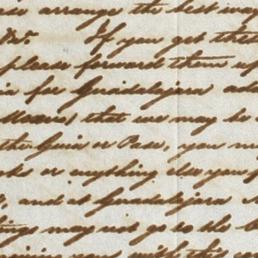 arrange the best way
&c. If you get these
please forward them up
in for Guadalajara add
Means) that we may be
the Guia or Pase, you m
or anything else you
, and at Guadalajara
ings may not go to the
with this